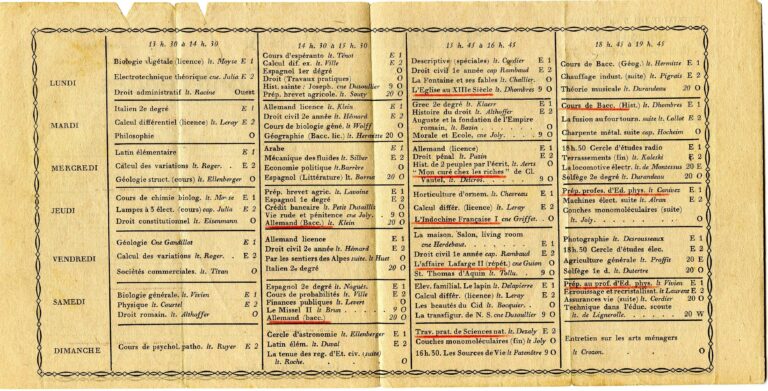 13 h. 30 à 14 h. 30
14 h. 30 à 15 h. 30
15 h. 45 à 16 h. 45
18 h. 45 à 19 h. 45
LUNDI
Biologie végétale (licence) lt. Moyse E 1
Electrotechnique théorique cne. Julia E 2
Droit administratif lt. Racine Ouest
Cours d'espéranto lt. Ténot E 1
Calcul dif. ex. lt. Ville E 2
Espagnol 1er dégré O
Droit (Travaux pratiques) O
Hist. sainte : Joseph. cne Dusoullier 9 O
Prép. brevet agricole. lt. Souty 20 O
Descriptive (spéciales) lt. Cordier E 1
Droit civil 1e année cap Rambaud E 2
La Fontaine et ses fables lt. Challier. O
L'Eglise au XIIIe Siècle lt. Dhombres 9 O
Cours de Bacc. (Géog.) lt. Hermitte E 1
Chauffage indust. (suite) lt. Pigrais E 2
Théorie musicale lt. Durandeau 20 O
MARDI
Italien 2e degré E 1
Calcul différentiel (licence) lt. Leray E 2
Philosophie O
Allemand licence lt. Klein E 1
Droit civil 2e année lt. Hémard E 2
Cours de biologie géné. lt Wolff O
Géographie (Bacc. lic.) lt. Hermitte 20 O
Grec 2e degré lt. Klaerr E 1
Histoire du droit lt. Althoffer E 2
Auguste et la fondation de l'Empire
romain. lt. Bazin O
Morale et Ecole, cne Joly. 9 O
Cours de Bacc. (Hist.) lt. Dhombres E 1
La fusion au four tourn. suite lt. Collot E 2
Charpente métal. suite cap. Hocheim O
MERCREDI
Latin élémentaire E 1
Calcul des variations lt. Roger. E 2
Géologie struct. (cours) lt. Ellenberger O
Arabe E 1
Mécanique des fluides lt. Silber E 2
Economie politique lt. Barrère O
Espagnol (Littérature) lt. Borrus 20 O
Allemand (licence) E 1
Droit pénal lt. Patin E 2
Hist. de 2 peuples par l'écrit. lt. Aerts O
"Mon curé chez les riches" de Cl.
Vautel, lt. Delcros. 9 O
18 h. 50 Cercle d'études radio E 1
Terrassements (fin) lt. Kaleski E 2
La locomotive électr. lt. de Maneceau 20 E
Solfège 2e degré lt. Durandeau O
JEUDI
Cours de chimie biolog. lt. Morse E 1
Lampes à 5 élect. (cours) cap. Julia E 2
Droit constitutionnel lt. Eisenmann O
Prép. brevet agric. lt. Lavoine E 1
Espagnol 1e degré E 2
Crédit bancaire lt. Petit Dutaillis O
Vie rude et pénitence cne Joly. 9 O
Allemand (Bacc.) lt. Klein 20 O
Horticulture d'ornem. lt. Chevreau E 1
Calcul différ. (licence) lt. Leray E 2
L'Indochine Française I cne Griffet. O
Prép. profes. d'Ed. phys. lt Canivez E 1
Machines élect. suite lt. Alran E 2
Couches monomoléculaires (suite)
lt. Joly. O
VENDREDI
Géologie Cne Gandillot E 1
Calcul des variations lt. Roger. E 2
Sociétés commerciales. lt. Titran O
Allemand licence E 1
Droit civil 2e année lt. Hémard E 2
Par les sentiers des Alpes suite lt. Huet O
Italien 2e degré 20 O
La maison. Salon, living room
cne Herdebaut. E 1
Droit civil 1e année cap. Rambaud E 2
L'affaire Lafarge II (répét.) cne Guiom O
St. Thomas d'Aquin lt. Tolla. 9 O
Photographie lt. Doirousseaux E 1
18 h. 50 Cercle d'études élec. E 2
Agriculture générale lt. Proffit 20 E
Solfège 1e d. lt. Dutertre O
SAMEDI
Biologie générale. lt. Vivien E 1
Physique lt. Courtel E 2
Droit romain. lt. Althoffer O
Espagnol 2e degré lt. Nogués. E 1
Cours de probabilités lt. Ville E 2
Finances publiques lt. Levert O
Le Missel II lt Brun 9 O
Allemand (bacc.) 20 O
Elev. familial. Le lapin lt. Delapierre E 1
Calcul différ. (licence) lt. Leray E 2
Les beautés du Cid lt. Becquart. O
La transfigur. de N. S. cne Dusoullier 9 O
Prép. au prof. d'Ed. phys. lt Vivien E 1
Ecrouissage et recristallisat. lt Laurent E 2
Assurances vie (suite) lt. Cordier O
Technique dans l'éduc. scoute
lt. de Lignerolle. 20 W
DIMANCHE
Cours de psychol. patho. lt. Ruyer E 2
Cercle d'astronomie lt. Ellenberger E 1
Latin élém. lt. Duval E 2
La tenue des reg. d'Et. civ. (suite)
lt. Roche. O
Trav. prat. de Sciences nat. lt. Dezaly E 1
Couches monomoléculaires (fin) lt Joly O
16 h. 50. Les Sources de Vie lt Patenôtre 9 O
Entretien sur les arts ménagers
lt. Crozon. O